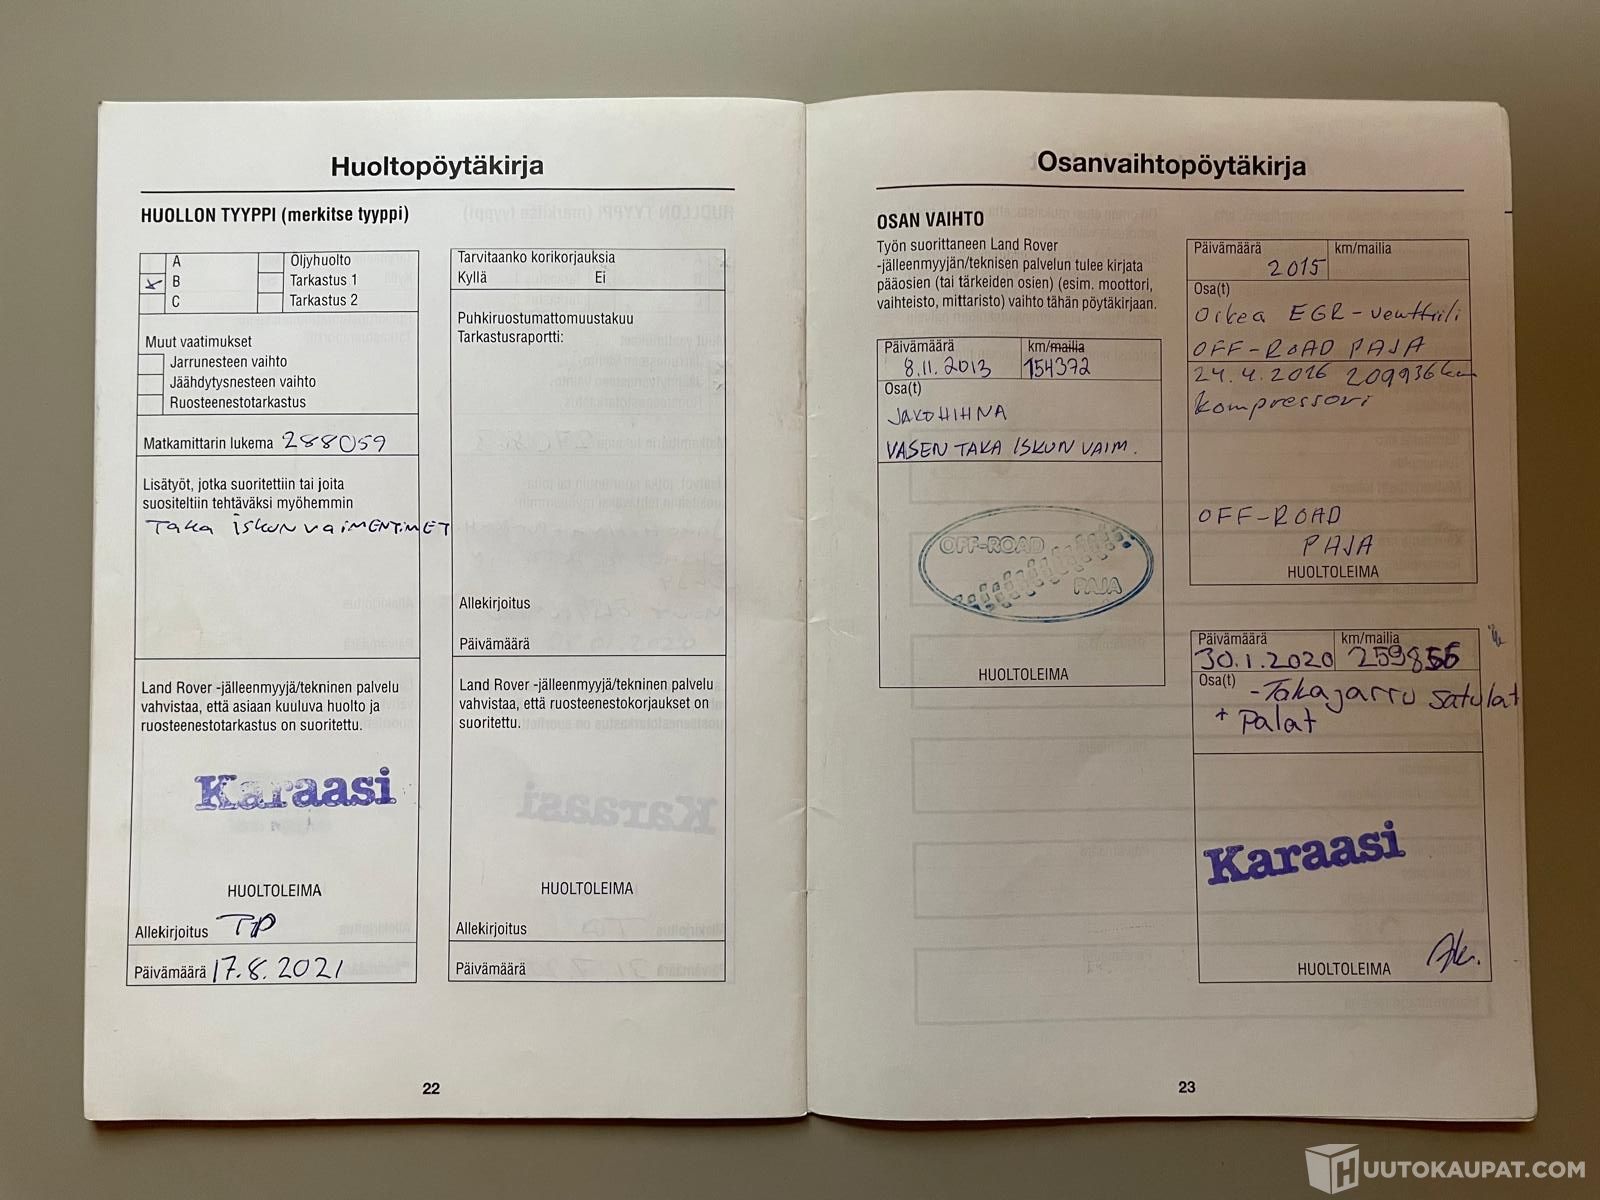 Huoltopöytäkirja
HUOLLON TYYPPI (merkitse tyyppi)
A
B
C
Öljyhuolto
Tarkastus 1
Tarkastus 2
Muut vaatimukset
Jarrunesteen vaihto
Jäähdytysnesteen vaihto
Ruosteenestotarkastus
Matkamittarin lukema 288059
Lisätyöt, jotka suoritettiin tai joita
suositeltiin tehtäväksi myöhemmin
Taka iskunvaimentimet
Land Rover -jälleenmyyjä/tekninen palvelu
vahvistaa, että asiaan kuuluva huolto ja
ruosteenestotarkastus on suoritettu.
Karaasi
HUOLTOLEIMA
Allekirjoitus TP
Päivämäärä 17.8.2021
Tarvitaanko korikorjauksia
Kyllä Ei
Puhkiruostumattomuustakuu
Tarkastusraportti:
Allekirjoitus
Päivämäärä
Land Rover -jälleenmyyjä/tekninen palvelu
vahvistaa, että ruosteenestokorjaukset on
suoritettu.
HUOLTOLEIMA
Allekirjoitus
Päivämäärä
22
Osanvaihtopöytäkirja
OSAN VAIHTO
Työn suorittaneen Land Rover
-jälleenmyyjän/teknisen palvelun tulee kirjata
pääosien (tai tärkeiden osien) (esim. moottori,
vaihteisto, mittaristo) vaihto tähän pöytäkirjaan.
Päivämäärä km/mailia
8.11.2013 154372
Osa(t)
JAKOHIHNA
VASEN TAKA ISKUN VAIM.
OFF-ROAD
PAJA
HUOLTOLEIMA
Päivämäärä km/mailia
2015
Osa(t)
Oikea EGR-venttiili
OFF-ROAD PAJA
24.4.2016 209936km
Kompressori
OFF-ROAD
PAJA
HUOLTOLEIMA
Päivämäärä km/mailia
30.1.2020 259856
Osa(t)
-Takajarru satulat
+ Palat
Karaasi
HUOLTOLEIMA
23
HUUTOKAUPAT.COM